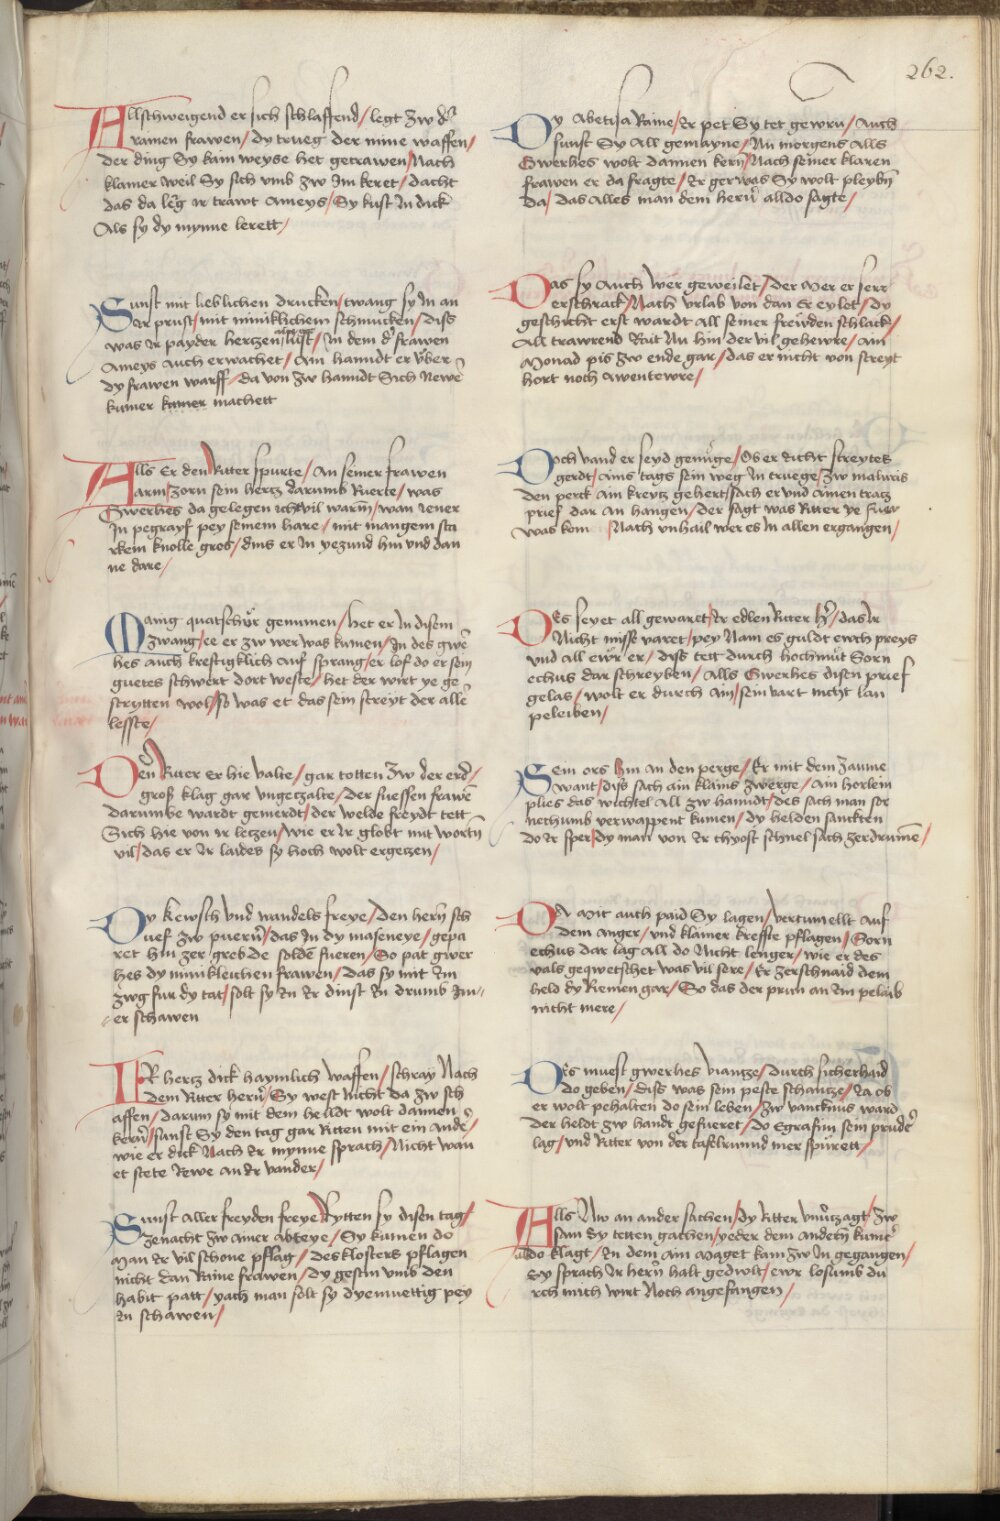 262.
Allschweigend er sich schlaffend / legt zw dˢ
ramen frawen / dy trueg der mine waffen /
der ding Sy kain weyse het getrawen / Nach
klainer weil Sy sich vmb zw Im keret / dacht
das da leg ir trawt Ameys / Sy kust In dick
Als sy dy mynne lerett /
Sunst mit lieblichen drucken / twang sy In an
Ir prust / mit miniklichem schmucken / diss
was Ir payder hertzen lust / In dem dˢ frawen
Ameys auch erwachet / Ain handt er vber
dy frawen warff / da von zw handt Sich Newe
kumer machett
Alls Er den Ritter spurte / An seiner frawen
arm / zorn sein hertz darumb Rierte / was
Gwerhes da gelegen icht vil warm / wan iener
In pegrayf pey seinem hare / mit mangem sta
rkem knolle gros / dins er In yezund hin vnd dan
ne dare /
Manig quatschür genumen / het er In disem
zwang / ee er zw wer was kumen / In des gwe
hes auch krefftigklich auf sprang / er lof do er sein
guetes schwert dort weste / het der wirt ye ge
strytten wol / so was et das sein streyt der alle
lesste /
Den Ritter er hie valte / gar totten zw der erdˢ /
groß klag gar vngezalte / der suessen frawe
darumbe wardt gemerdt / der welde freydt tett
Sich hie von ir letzen / wie er Ir globt mit wortn
vil / das er Ir laides sy hoch wolt ergetzen /
Dy kewsch vnd wandels freye / den hern sch
uef zw puern / das In dy maseneye / gepa
ret hin zer grebde solde fueren / So pat gwer
hes dy minikleichen frawen / das sy mit Im
zwg fur dy tat / solt sy In Ir dinst In drumb Im,,
er schawen
IR hertz dick haymlich waffen / schray Nach
dem Ritter hern / Sy west nicht da zw sch
affen / darum sy mit dem helldt wolt dannen
kern / sunst Sy den tag gar Ritten mit ein andˢ /
wie er dick Nach Ir mynne sprach / Nicht wan
et stete Rewe an Ir vander /
Sunst aller freyden freye / Rytten sy disen tag /
ze nacht zw ainer abteye / Sy kumen do
Man Ir vil schone pflag / des klosters pflagen
nicht dan Raine frawen / dy gestin vmb den
habit patt / yach man solt sy dyemuettig pey
In schawen /
Dy Abetissa Raine / Ir pet Sy tet gewern / Auch
sunst Sy All gemayne / Nu morgens alls
Gwerhes wolt dannen kern / Nach seiner klaren
frawen er da fragte / Ir ger was Sy wolt pleybn
da / das alles man dem hern alldo sagte /
Das sy Auch wer geweilet / der Mer er serr
erschrack / Nach vrlab von dan Er eylet / dy
geschicht erst wardt all seiner freuden schlack /
All trawrend Rait Nu hin der vil gehewre / Ain
Monad pis zw ende gar / das er nicht von streyt
hort noch awentewre /
Doch vand er seyd genuge / Ob er Nicht streytes
gerdt / ains tags sein weg In truege / zw malivis
den perck Ain kreytz gehert / sach er vnd ainen tratz
prief dar An hangen / der sagt was Ritter ye fuer
was kom Nach vnhail wer es In allen ergangen /
Des seyet all gewaret / Ir edlen Ritter hˢ / das Ir
Nicht misse varet / pey Nam es guldt ewch preys
vnd all ewr er / diss tett durch hochmut Sorn
echus dar schreyben / Alls Gwerhes disen prief
gelas / wolt er durch Ain / sein vart nicht lan
peleiben /
Sein ors hin an den perge / Er mit dem zaume
want / diss sach ain klains zwerge / Ain hornlein
plies das wichtel all zw handt / des sach man sor
nechums verwappent kumen / dy helden sanckten
do Ir sper / dy man von Ir thyost schnel sach zerdrumen /
Da Mit auch paid Sy lagen / vertumellt auf
dem anger / vnd klainer kreffte pflagen / Sorn
echus dar lag all do Nicht lenger / wie er des
vals gequetschet was vil sere / Er zerschnaid dem
held dy Riemen gar / So das der prun an Im pelaib
nicht mere /
Des muest gwerhes viantze / durch sicherhaid
do geben / diss was sein peste schantze / Ja ob
er wolt pehalten do sein leben / zw vancknus ward
der heldt zw handt gefueret / do Egrafin sein prudˢ
lag / vnd Ritter von der tafelrunnd mer spürett /
Alls Nw an ander sachen / dy Ritter vnuˢzagt / zw
sam dy teten gachen / yeder dem andern kumˢ
aldo klagt / In dem Ain Maget kam zw In gegangen /
Sy sprach Ir hern halt gedwlt / ewr losumb du
rch mich wirt Noch angefangen /